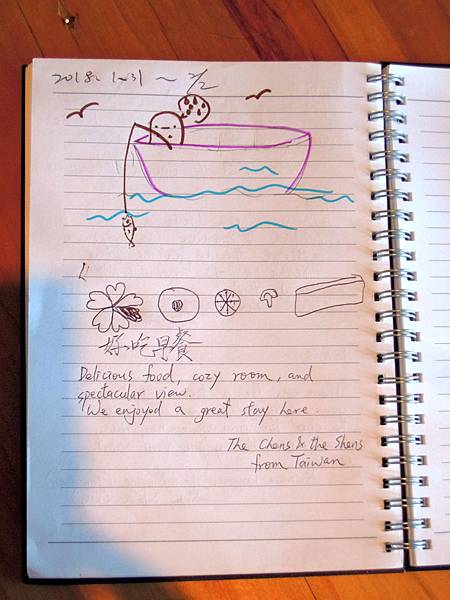 2018. 1.31 ~ 2/2
好吃早餐
Delicious food, cozy room, and
spectacular view.
We enjoyed a great stay here.
The Chens & the Shens
from Taiwan